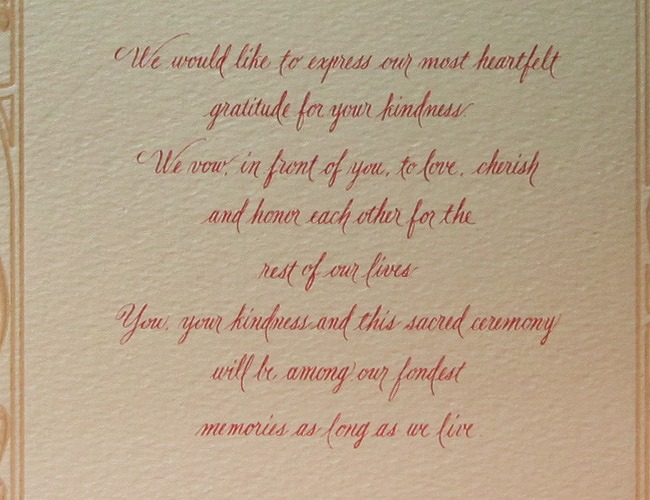 We would like to express our most heartfelt
gratitude for your kindness.
We vow, in front of you, to love, cherish
and honor each other for the
rest of our lives
You, your kindness and this sacred ceremony
will be among our fondest
memories as long as we live.